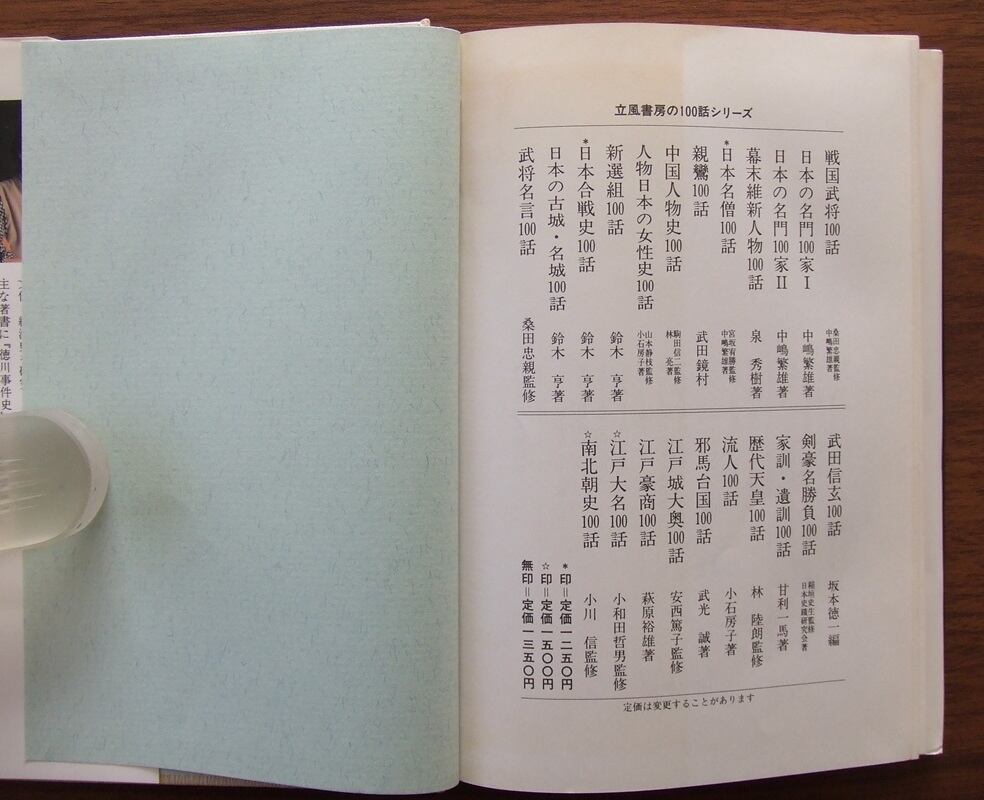 立風書房の100話シリーズ
戦国武将100話 桑田忠親監修 中嶋繁雄著
日本の名門100家Ⅰ 中嶋繁雄著
日本の名門100家Ⅱ 中嶋繁雄著
幕末維新人物100話 泉 秀樹著
*日本名僧100話 宮坂宥勝監修 中嶋繁雄著
親鸞100話 武田鏡村
中国人物史100話 駒田信二監修 林 亮著
人物日本の女性史100話 山本静枝監修 小石房子著
新選組100話 鈴木 亨著
*日本合戦史100話 鈴木 亨著
日本の古城・名城100話 鈴木 亨著
武将名言100話 桑田忠親監修
武田信玄100話 坂本徳一編
剣豪名勝負100話 稲垣史生監修 日本史蹟研究会著
家訓・遺訓100話 甘利一馬著
歴代天皇100話 林 陸朗監修
流人100話 小石房子著
邪馬台国100話 武光 誠著
江戸城大奥100話 安西篤子監修
江戸豪商100話 萩原裕雄著
☆江戸大名100話 小和田哲男監修
☆南北朝史100話 小川 信監修
*印=定価一二五〇円
☆印=定価一五〇〇円
無印=定価一三五〇円
定価は変更することがあります
主な著書に『徳川事件史